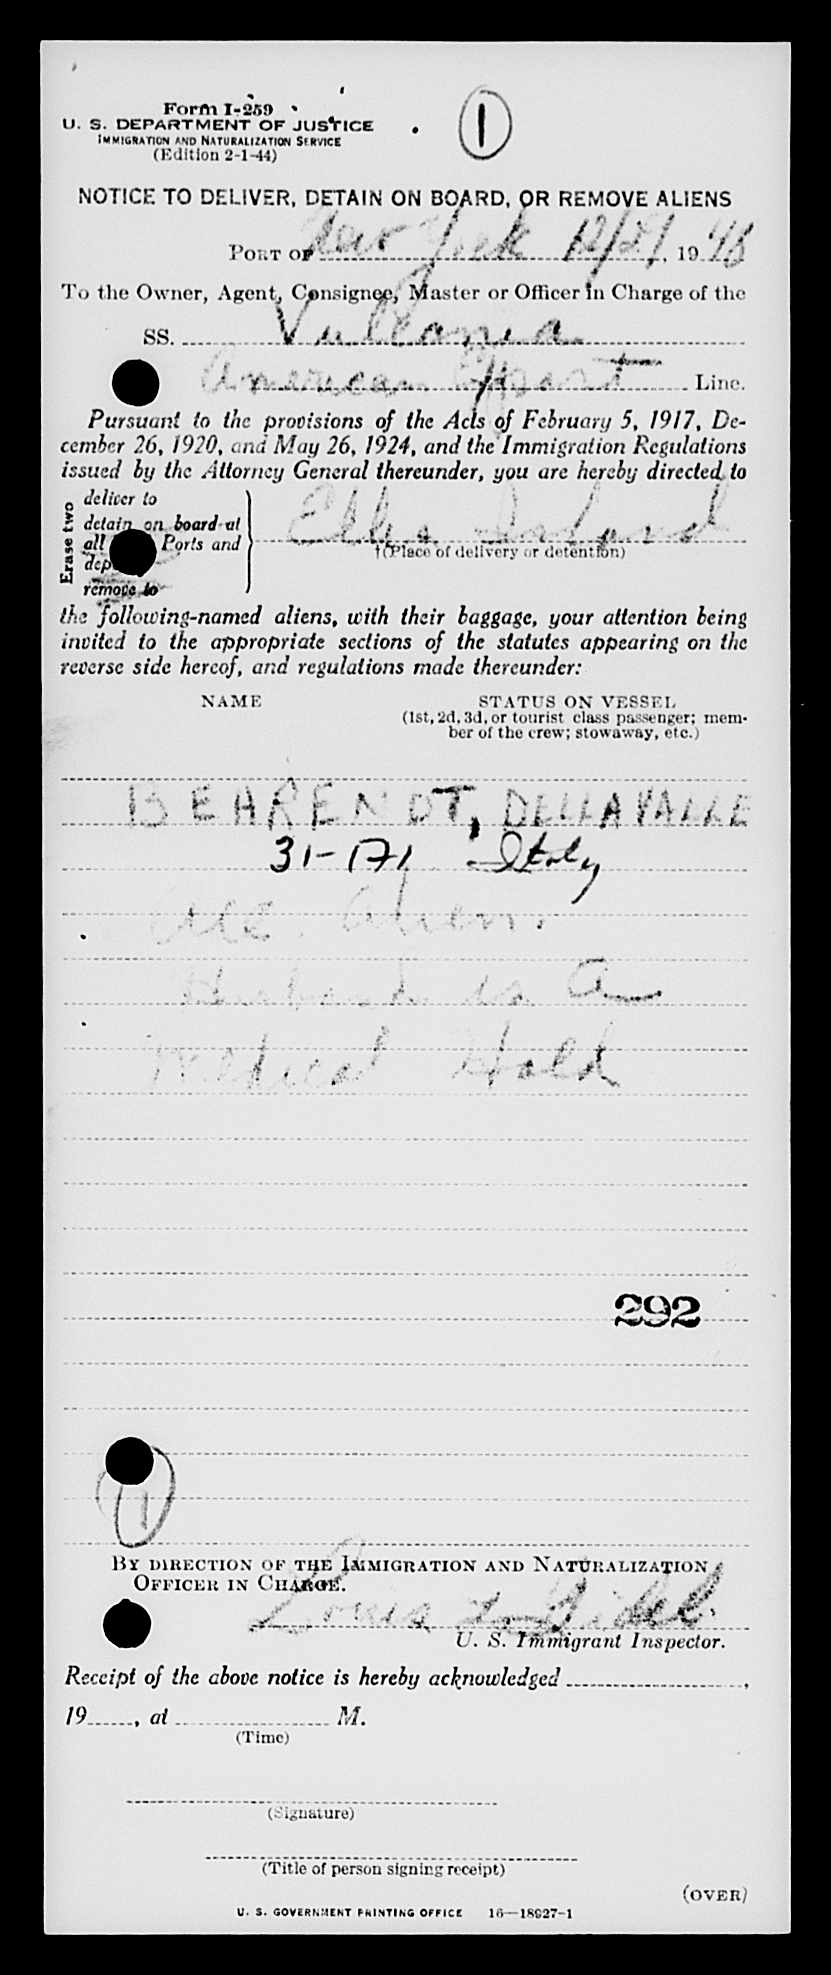 Form I-259
U. S. DEPARTMENT OF JUSTICE
IMMIGRATION AND NATURALIZATION SERVICE
(Edition 2-1-44)
1
NOTICE TO DELIVER, DETAIN ON BOARD, OR REMOVE ALIENS
PORT OF New York 12/21, 1946
To the Owner, Agent, Consignee, Master or Officer in Charge of the
SS. Vulcania
American Export Line.
Pursuant to the provisions of the Acts of February 5, 1917, De-
cember 26, 1920, and May 26, 1924, and the Immigration Regulations
issued by the Attorney General thereunder, you are hereby directed to
Erase two
deliver to
detain on board at
all Ports and
remove to
Ellis Island
†(Place of delivery or detention)
the following-named aliens, with their baggage, your attention being
invited to the appropriate sections of the statutes appearing on the
reverse side hereof, and regulations made thereunder:
NAME STATUS ON VESSEL
(1st, 2d, 3d, or tourist class passenger; mem-
ber of the crew; stowaway, etc.)
BEHRENDT, DELLAVALLE
31-171 Italy
Acc. Alien.
Husband is a
Medical Hold
292
BY DIRECTION OF THE IMMIGRATION AND NATURALIZATION
OFFICER IN CHARGE.
Louis
U. S. Immigrant Inspector.
Receipt of the above notice is hereby acknowledged ,
19 , at M.
(Time)
(Signature)
(Title of person signing receipt)
(OVER)
U. S. GOVERNMENT PRINTING OFFICE 16—18927-1